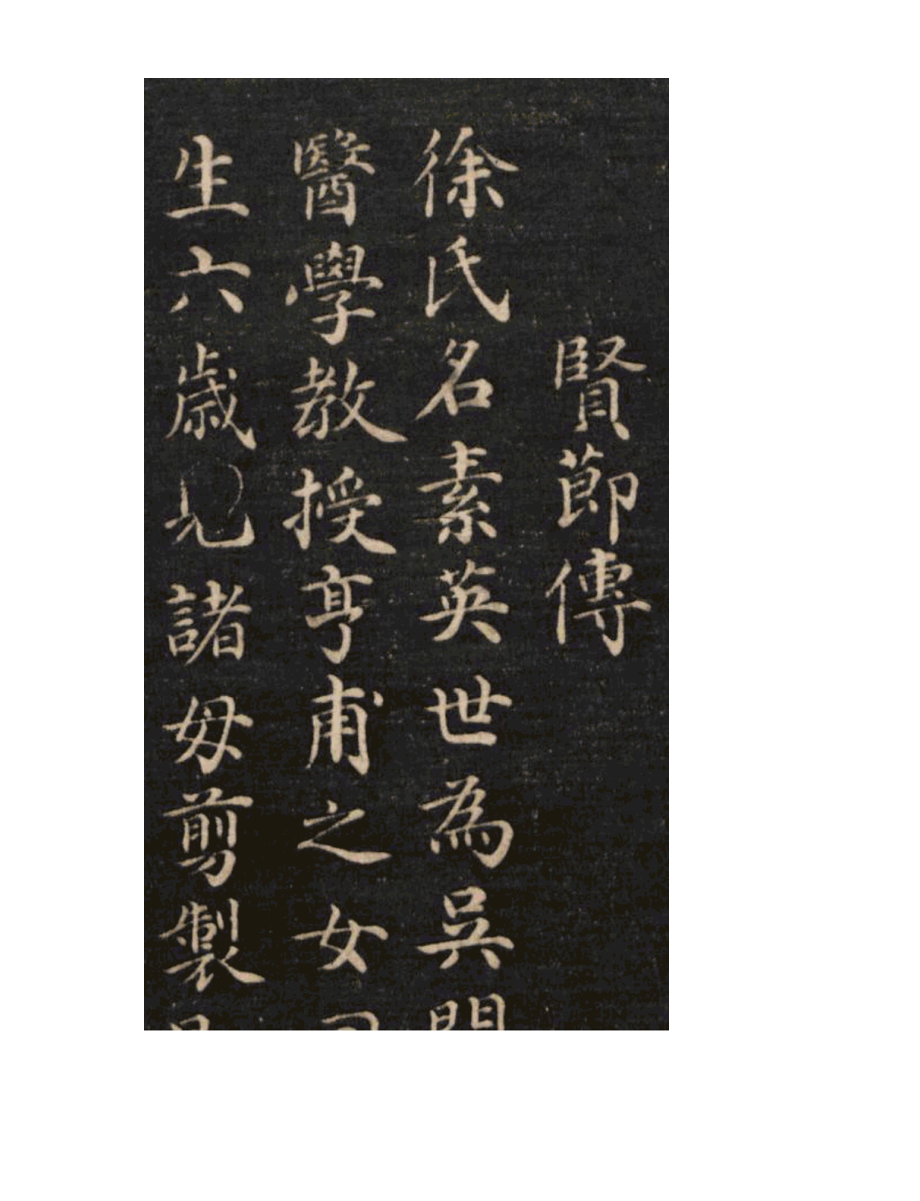 賢節傳
徐氏名素英世為吳
醫學教授亨甫之女
生六歲見諸母剪製